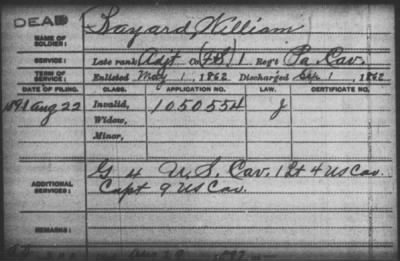 DEAD
NAME OF SOLDIER: Bayard, William
SERVICE: Late rank Adjt Co. (F.S.) 1 Reg't Pa. Cav.
TERM OF SERVICE: Enlisted May 1, 1862 Discharged Sep. 1, 1862
DATE OF FILING. CLASS. APPLICATION NO. LAW. CERTIFICATE NO.
1891 Aug 22 Invalid, 1050554 J
Widow,
Minor,
ADDITIONAL SERVICES: G 4 U.S. Cav. 1 Lt 4 US Cav.
Capt 9 US Cav.
REMARKS: